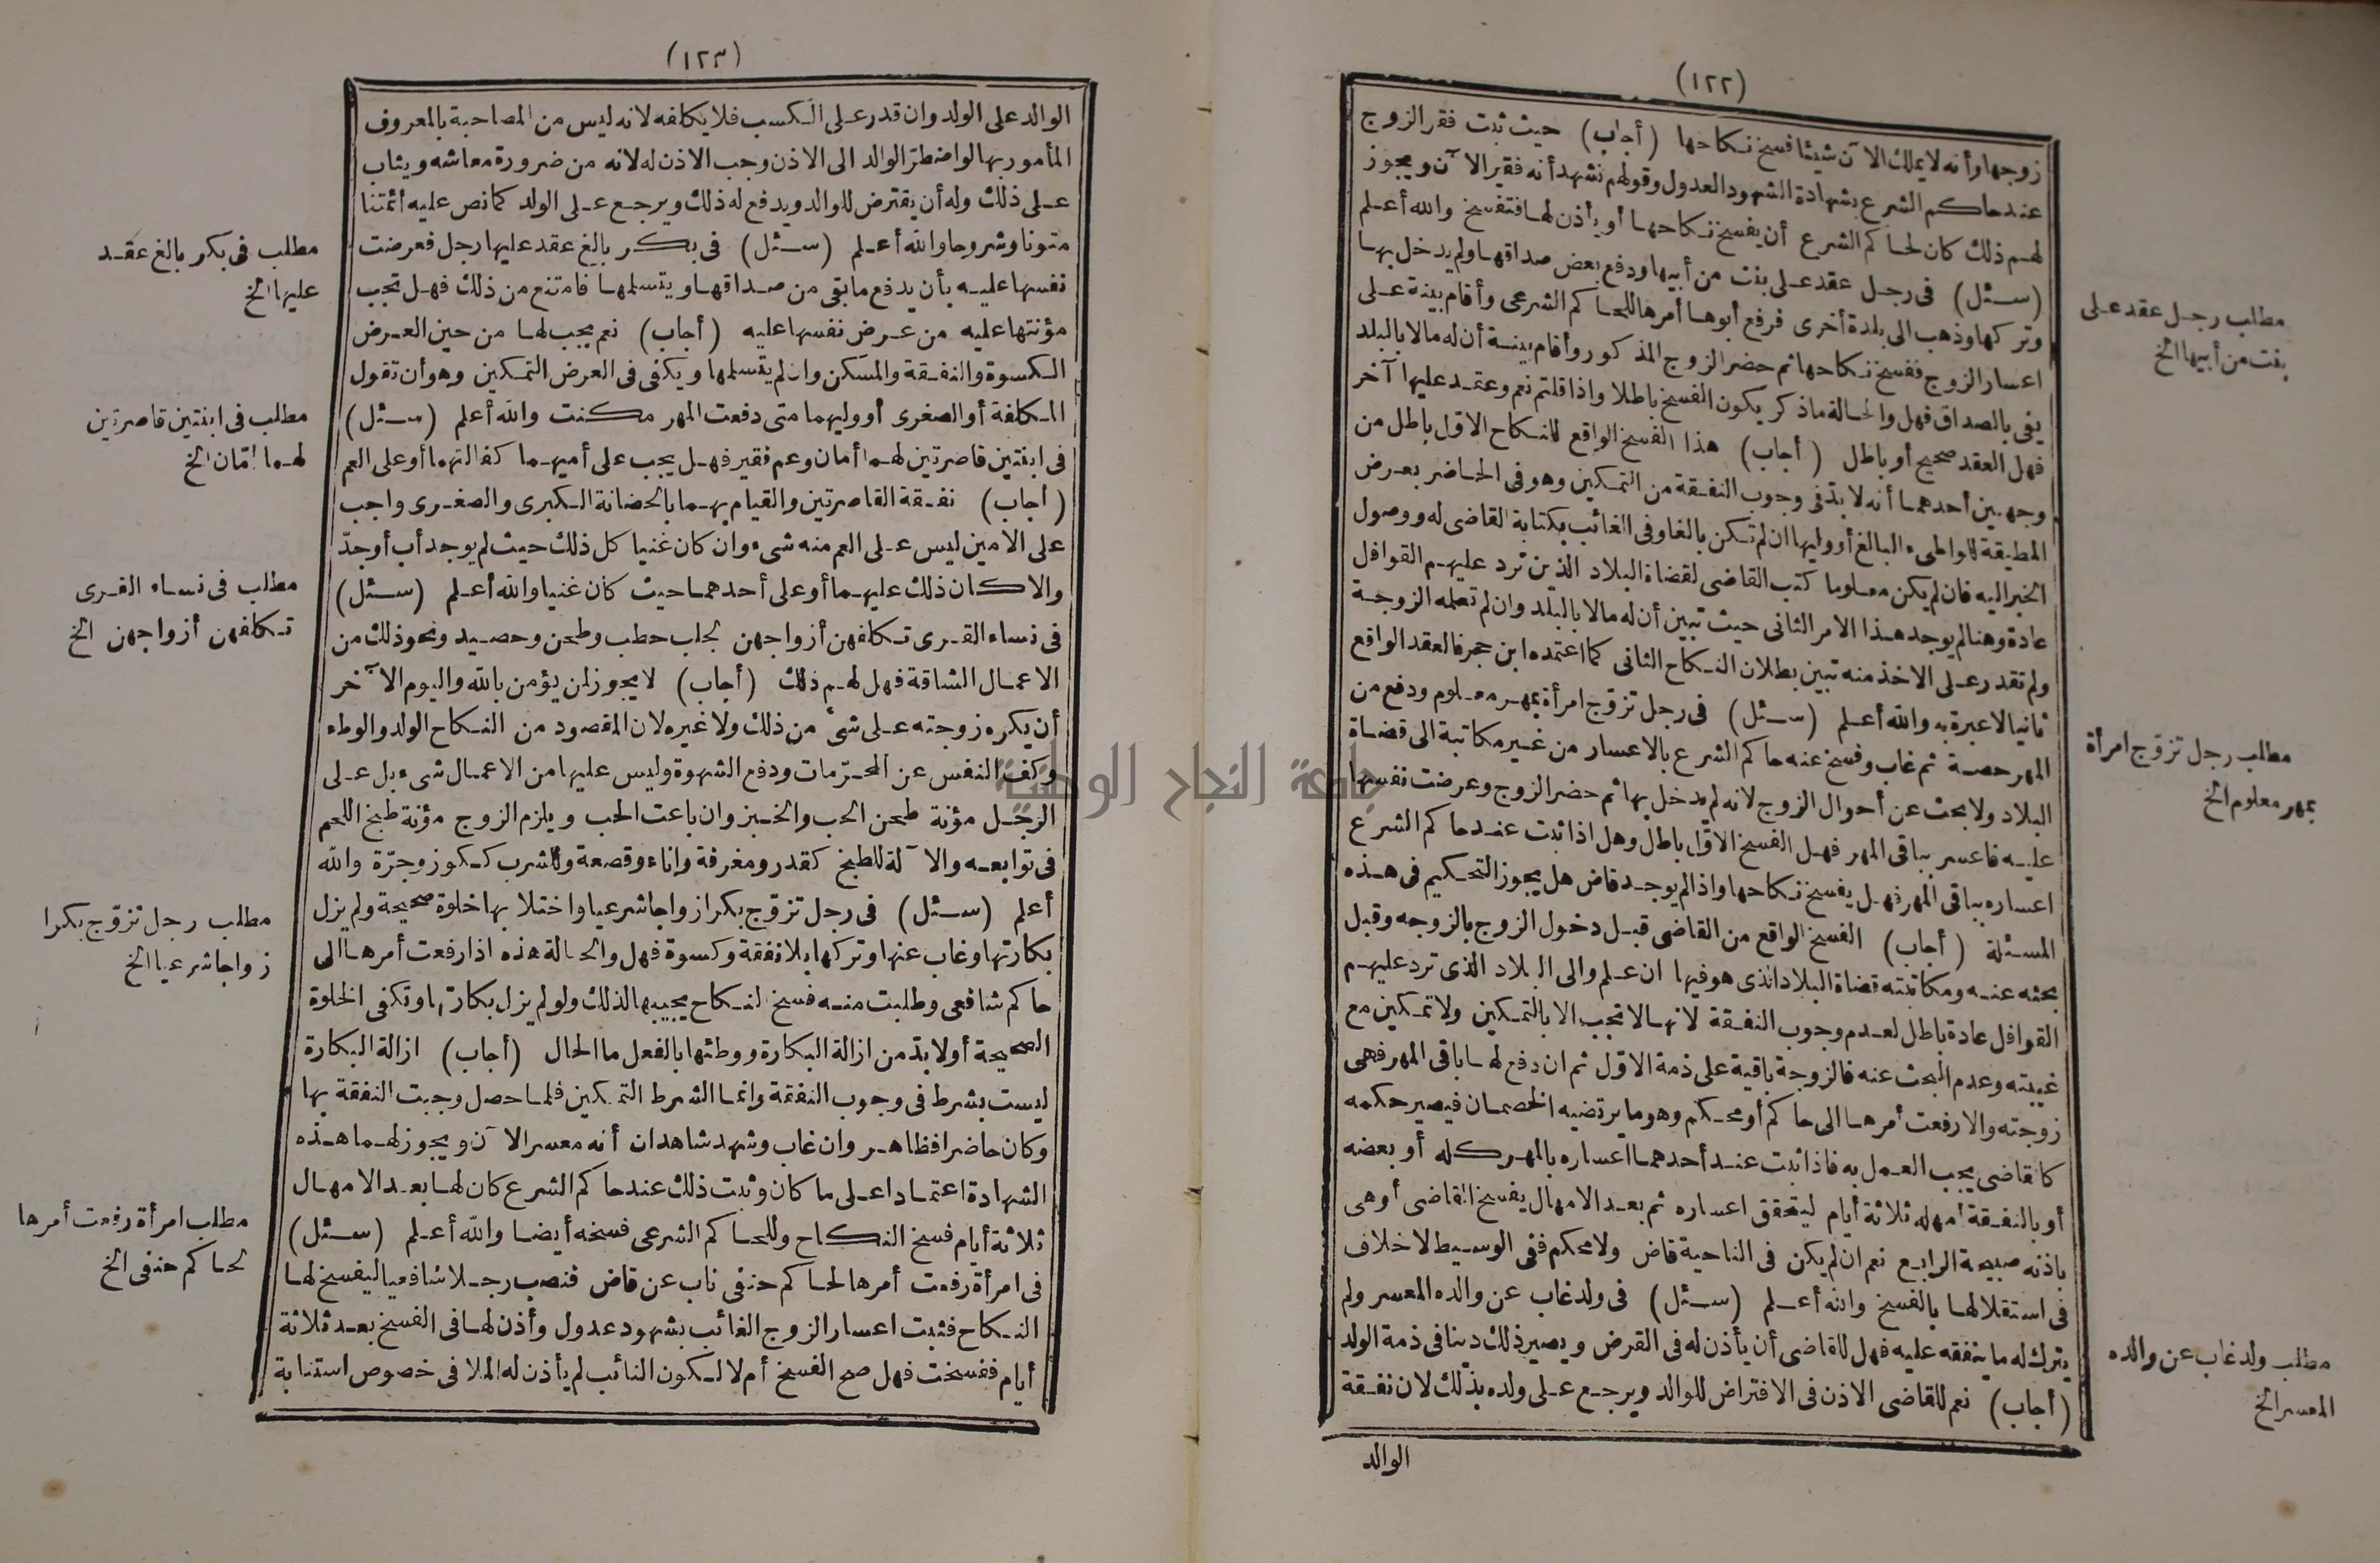 (١٢٢)
زوجها وأنه لا يملك الآن شيئا فسخ نكاحها (أجاب) حيث ثبت فقر الزوج
عند حاكم الشرع بشهادة الشهود العدول وقولهم نشهد أنه فقير الآن ويجوز
لهم ذلك كان لحاكم الشرع أن يفسخ نكاحها أو يأذن لها فتفسخ والله أعلم
(سئل) فى رجل عقد على بنت من أبيها ودفع بعض صداقها ولم يدخل بها
وتركها وذهب الى بلدة أخرى فرفع أبوها أمرها للحاكم الشرعى وأقام بينة على
اعسار الزوج ففسخ نكاحها ثم حضر الزوج المذكور وأقام بينة أن له مالا بالبلد
يفى بالصداق فهل والحالة ما ذكر يكون الفسخ باطلا واذا قلتم نعم وعقد عليها آخر
فهل العقد صحيح أو باطل (أجاب) هذا الفسخ الواقع للنكاح الاول باطل من
وجهين أحدهما أنه لا بد فى وجوب النفقة من التمكين وهو فى الحاضر بعرض
المطيقة للوطىء البالغ أو وليها ان لم تكن بالغا وفى الغائب بكتابة القاضى له ووصول
الخبر اليه فان لم يكن معلوما كتب القاضى لقضاة البلاد الذين ترد عليهم القوافل
عادة وهنا لم يوجد هذا الامر الثانى حيث تبين أن له مالا بالبلد وان لم تعلمه الزوجة
ولم تقدر على الاخذ منه تبين بطلان النكاح الثانى كما اعتمده ابن حجر فالعقد الواقع
ثانيا لا عبرة به والله أعلم (سئل) فى رجل تزوّج امرأة بمهر معلوم ودفع من
المهر حصة ثم غاب وفسخ عنه حاكم الشرع بالاعسار من غير مكاتبة الى قضاة
البلاد ولا بحث عن أحوال الزوج لانه لم يدخل بها ثم حضر الزوج وعرضت نفسها
عليه فاعسر بباقى المهر فهل الفسخ الاوّل باطل وهل اذا ثبت عند حاكم الشرع
اعساره بباقى المهر فهل يفسخ نكاحها واذا لم يوجد قاض هل يجوز التحكيم فى هذه
المسئلة (أجاب) الفسخ الواقع من القاضى قبل دخول الزوج بالزوجه وقبل
بحثه عنه ومكاتبته قضاة البلاد الذى هو فيها ان علم والى البلاد الذى ترد عليهم
القوافل عادة باطل لعدم وجوب النفقة لانها لا تجب الا بالتمكين ولا تمكين مع
غيبته وعدم البحث عنه فالزوجة باقية على ذمة الاوّل ثم ان دفع لها باقى المهر فهى
زوجته والا رفعت أمرها الى حاكم أو محكم وهو ما يرتضيه الخصمان فيصير حكمه
كا قاضى يجب العمل به فاذا ثبت عند أحدهما اعساره بالمهر كله أو بعضه
أو بالنفقة أمهله ثلاثة أيام ليتحقق اعساره ثم بعد الامهال يفسخ القاضى أو هى
باذنه صبيحة الرابع نعم ان لم يكن فى الناحية قاض ولا محكم ففى الوسيط لا خلاف
فى استقلالها بالفسخ والله أعلم (سئل) فى ولد غاب عن والده المعسر ولم
يترك له ما ينفقه عليه فهل للقاضى أن يأذن له فى القرض ويصير ذلك دينا فى ذمة الولد
(أجاب) نعم للقاضى الاذن فى الاقتراض للوالد ويرجع على ولده بذلك لان نفقة
الوالد
مطلب رجل عقد على
بنت من أبيها الخ
مطلب رجل تزوّج امرأة
بمهر معلوم الخ
مطلب ولد غاب عن والده
المعسر الخ
(١٢٣)
الوالد على الولد وان قدر على الكسب فلا يكلفه لانه ليس من المصاحبة بالمعروف
المأمور بها لو اضطرّ الوالد الى الاذن وجب الاذن له لانه من ضرورة معاشه ويثاب
على ذلك وله أن يقترض للوالد ويدفع له ذلك ويرجع على الولد كما نص عليه أئمتنا
متونا وشروحا والله أعلم (سئل) فى بكر بالغ عقد عليها رجل فعرضت
نفسها عليه بأن يدفع ما بقى من صداقها ويتسلمها فامتنع من ذلك فهل تجب
مؤنتها عليه من عرض نفسها عليه (أجاب) نعم يجب لها من حين العرض
الكسوة والنفقة والمسكن وان لم يتسلمها ويكفى فى العرض التمكين وهو أن تقول
المكلفة أو الصغرى أو وليهما متى دفعت المهر مكنت والله أعلم (سئل)
فى ابنتين قاصرتين لهما أمان وعم فقير فهل يجب على أميهما كفالتهما أو على العم
(أجاب) نفقة القاصرتين والقيام بهما بالحضانة الكبرى والصغرى واجب
على الامين ليس على العم منه شىء وان كان غنيا كل ذلك حيث لم يوجد أب أو جدّ
والا كان ذلك عليهما أو على أحدهما حيث كان غنيا والله أعلم (سئل)
فى نساء القرى تكلفهن أزواجهن لجلب حطب وطحن وحصيد ونحو ذلك من
الاعمال الشاقة فهل لهم ذلك (أجاب) لا يجوز لمن يؤمن بالله واليوم الآخر
أن يكره زوجته على شئ من ذلك ولا غيره لان المقصود من النكاح الولد والوطء
وكف النفس عن المحرّمات ودفع الشهوة وليس عليها من الاعمال شىء بل على
الرجل مؤنة طحن الحب والخبز وان باعت الحب ويلزم الزوج مؤنة طبخ اللحم
فى توابعه والآلة للطبخ كقدر ومغرفة واناء وقصعة وللشرب ككوز وجرّة والله
أعلم (سئل) فى رجل تزوّج بكرا زواجا شرعيا واختلا بها خلوة صحيحة ولم يزل
بكارتها وغاب عنها وتركها بلا نفقة وكسوة فهل والحالة هذه اذا رفعت أمرها الى
حاكم شافعى وطلبت منه فسخ لنكاح يجيبها لذلك ولو لم يزل بكارتها وتكفى الخلوة
الصحيحة أولا بدّ من ازالة البكارة ووطئها بالفعل ما الحال (أجاب) ازالة البكارة
ليست بشرط فى وجوب النفقة وانما الشرط التمكين فلما حصل وجبت النفقة بها
وكان حاضرا فظاهر وان غاب وشهد شاهدان أنه معسر الآن ويجوز لهما هذه
الشهادة اعتمادا على ما كان وثبت ذلك عند حاكم الشرع كان لها بعد الامهال
ثلاثة أيام فسخ النكاح وللحاكم الشرعى فسخه أيضا والله أعلم (سئل)
فى امرأة رفعت أمرها لحاكم حنفى ناب عن قاض فنصب رجلا شافعيا ليفسخ لها
النكاح فثبت اعسار الزوج الغائب بشهود عدول وأذن لها فى الفسخ بعد ثلاثة
أيام ففسخت فهل صح الفسخ أم لا لكون النائب لم يأذن له الملا فى خصوص استنابة
مطلب فى بكر بالغ عقد
عليها الخ
مطلب فى ابنتين قاصرتين
لهما امّان الخ
مطلب فى نساء القرى
تكلفهن أزواجهن الخ
مطلب رجل تزوّج بكرا
زواجا شرعيا الخ
مطلب امرأة رفعت أمرها
لحاكم حنفى الخ
جامعة النجاح الوطنية